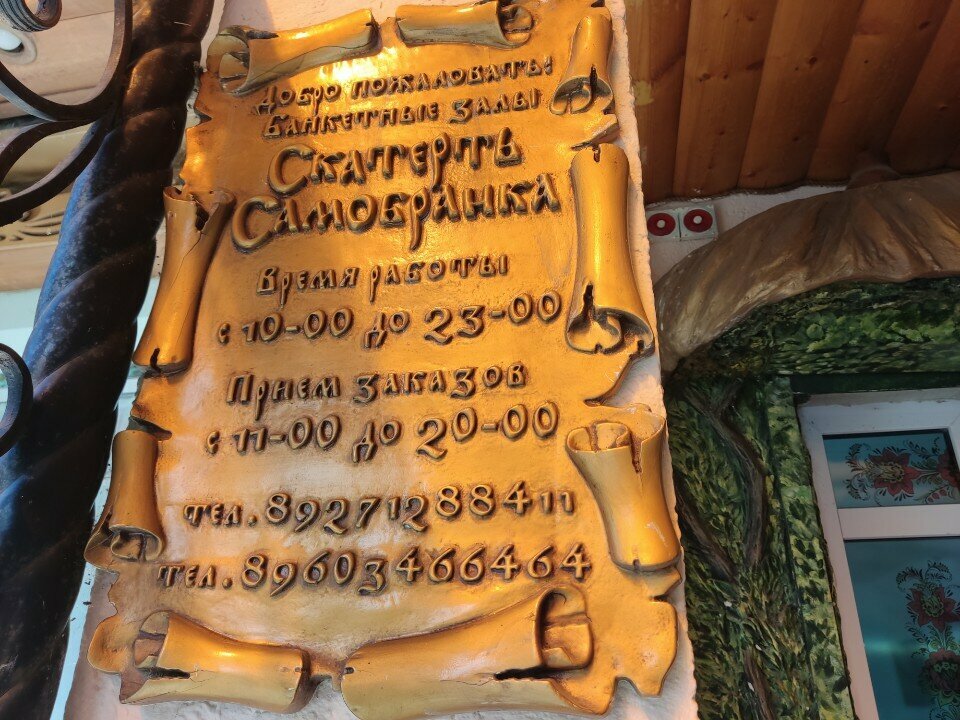 Добро пожаловать!
Банкетные залы
Скатерть
Самобранка
Время работы
с 10-00 до 23-00
Прием заказов
с 11-00 до 20-00
тел. 89271288411
тел. 89603466464